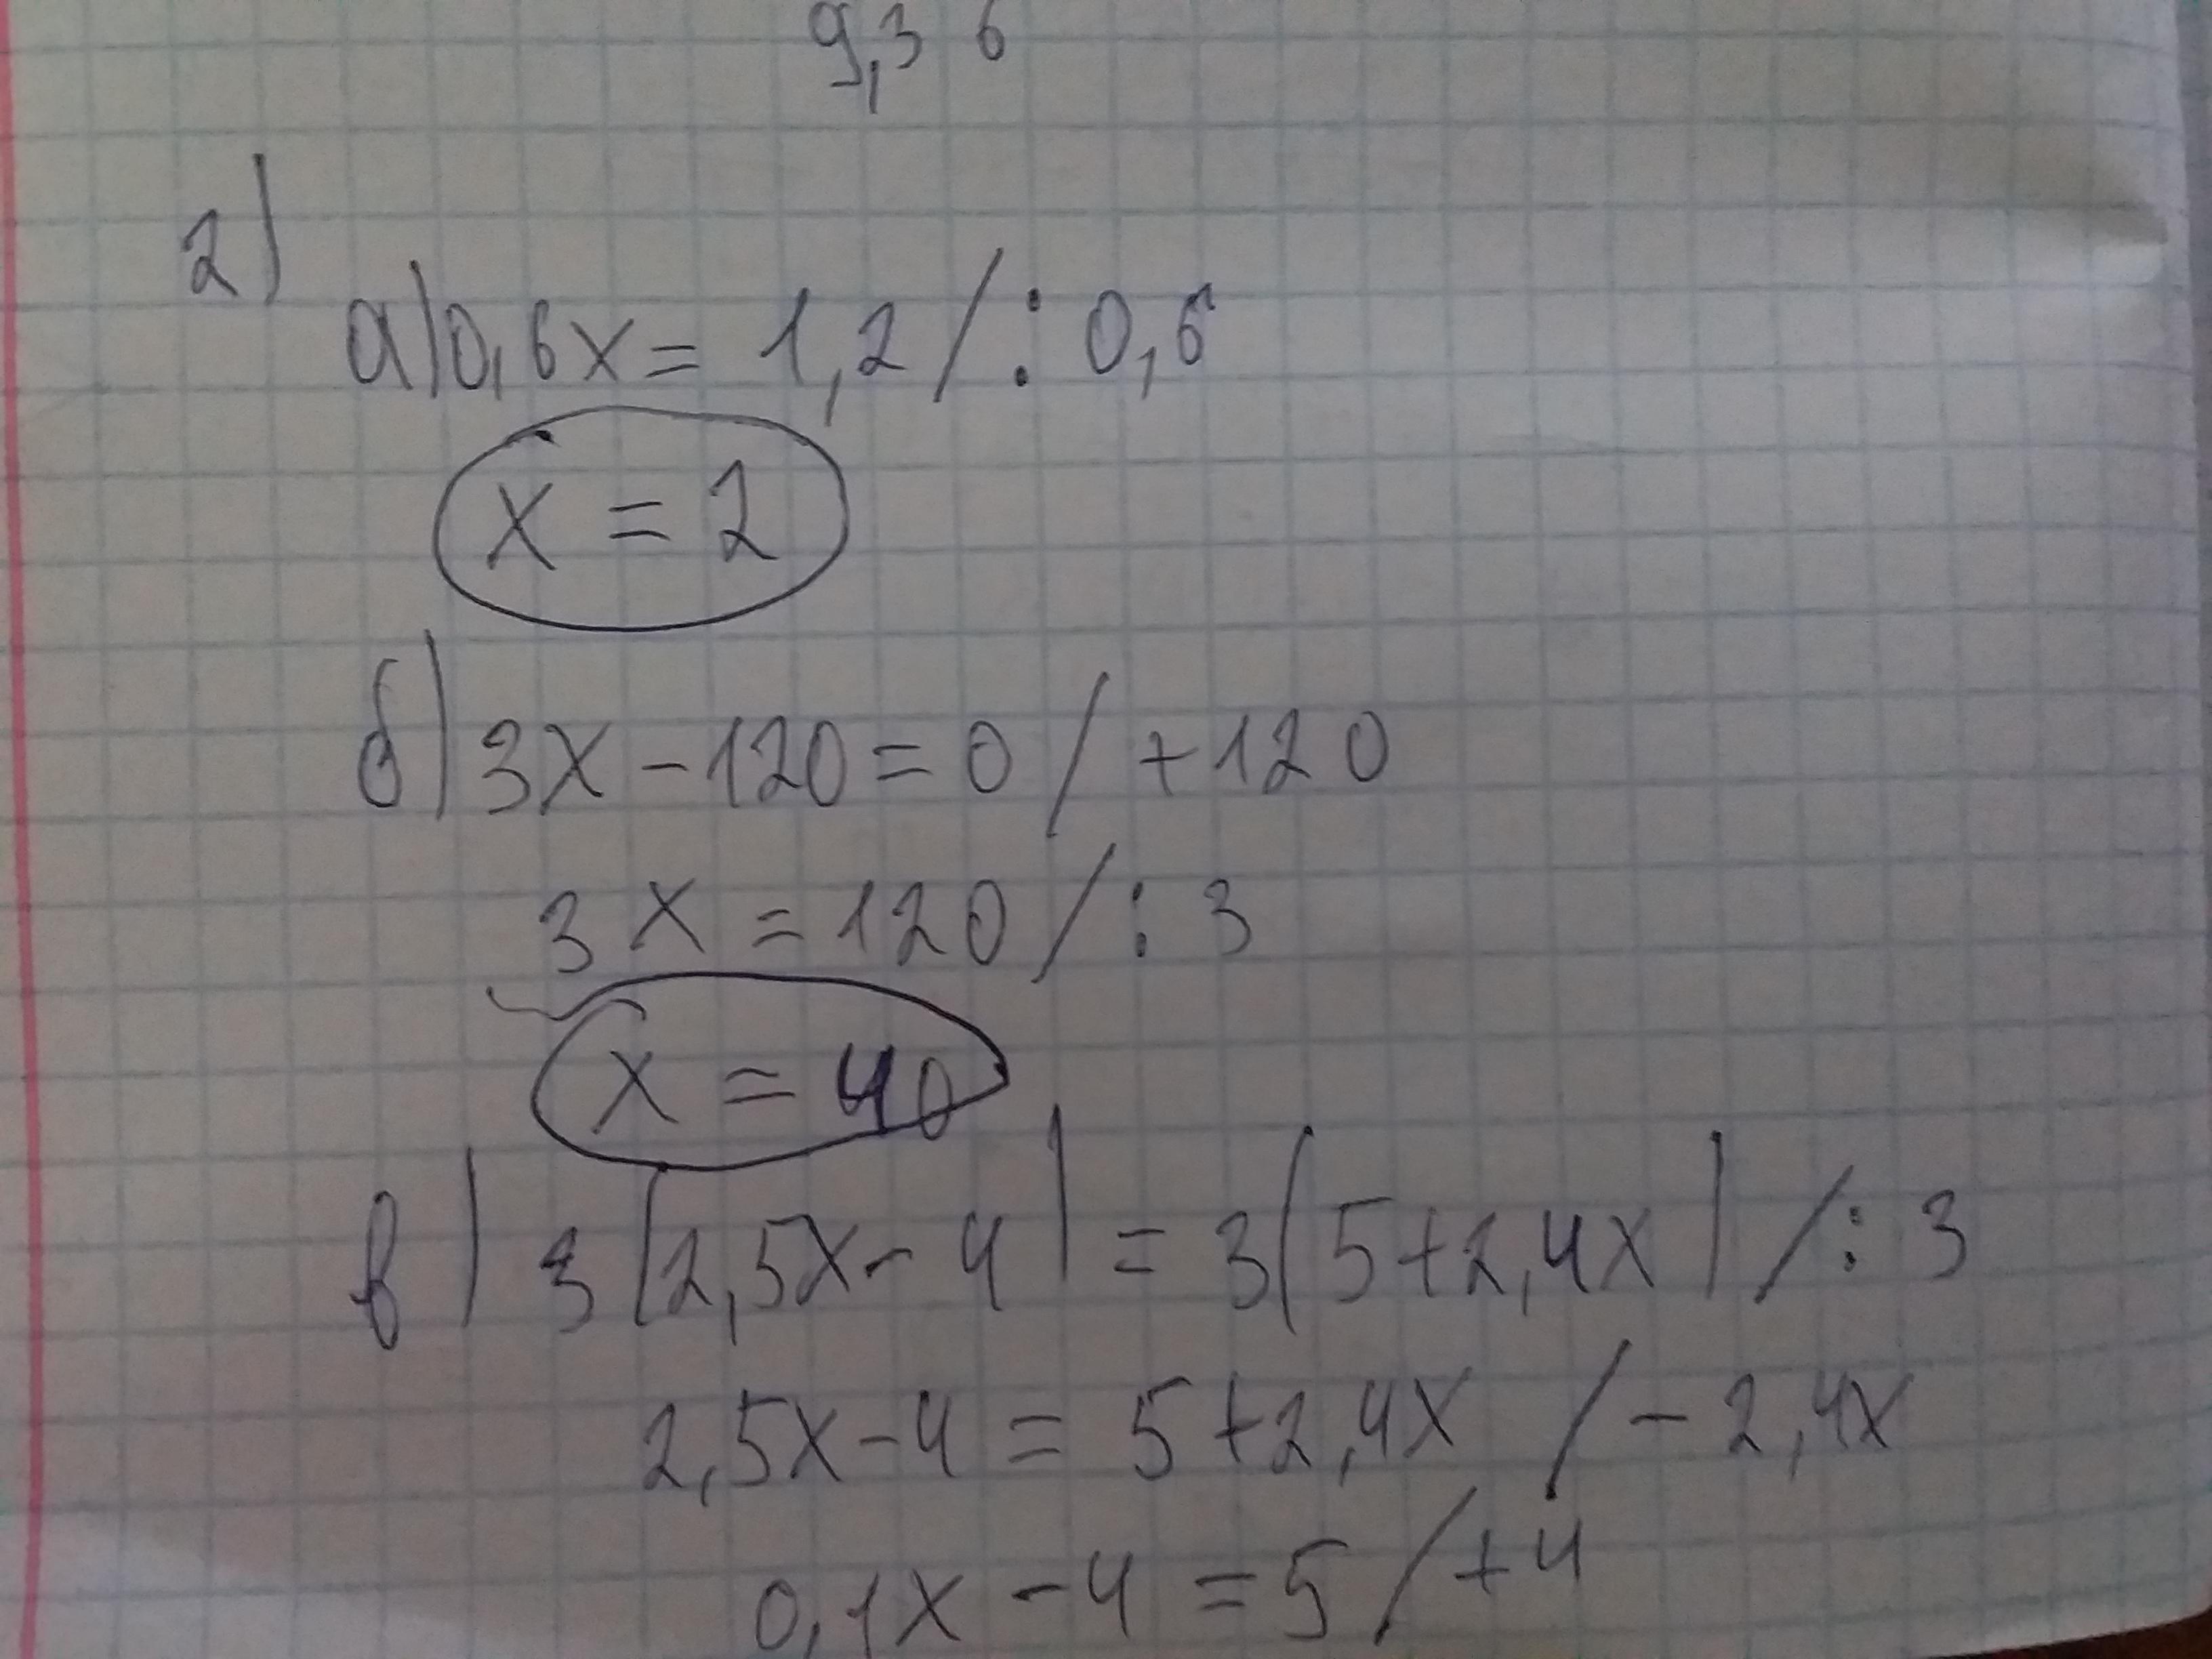 9,36
2)
а) 0,6x = 1,2 /: 0,6
x = 2
б) 3x - 120 = 0 / + 120
3x = 120 /: 3
x = 40
в) 3(2,5x - 4) = 3(5 + 2,4x) /: 3
2,5x - 4 = 5 + 2,4x / - 2,4x
0,1x - 4 = 5 / + 4